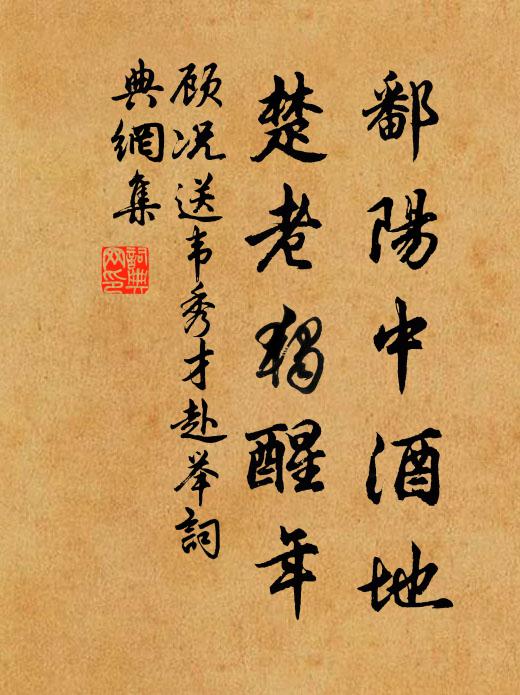 鄱陽中酒地
楚老独醒年
顾况送韦秀才赴举詞
典網集
詞典
网印